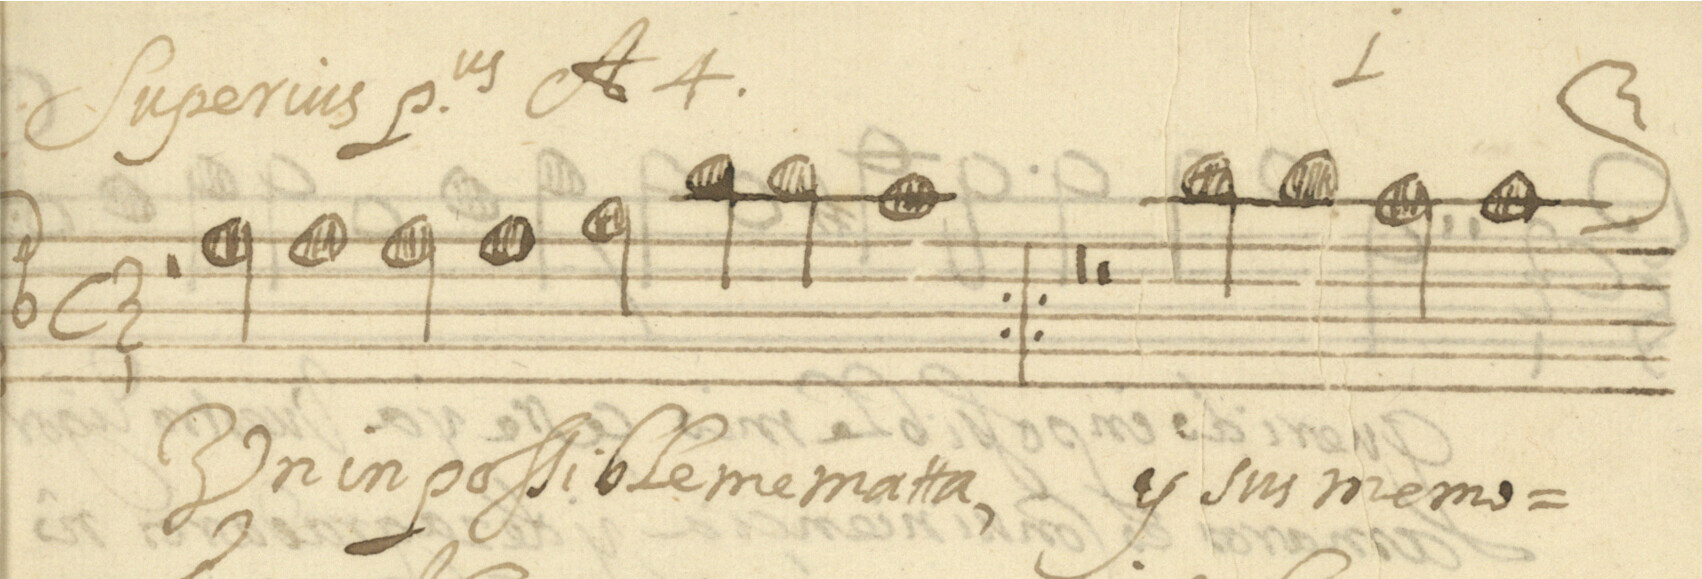 Superius p.us A 4.
1
Un inpossible me matta, y sus memo=